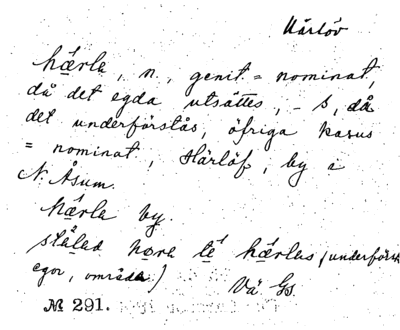 Härlöv
hä̱rla, n., genit. = nominat,
då det egda utsättes, - s, då
det underförstås, öfriga kasus
= nominat, Härlöf, by i
N. Åsum.
hä̱rla by.
ståled hora té hä̱rlas (underförst.
egor, område)
Vä Gs.
№ 291.